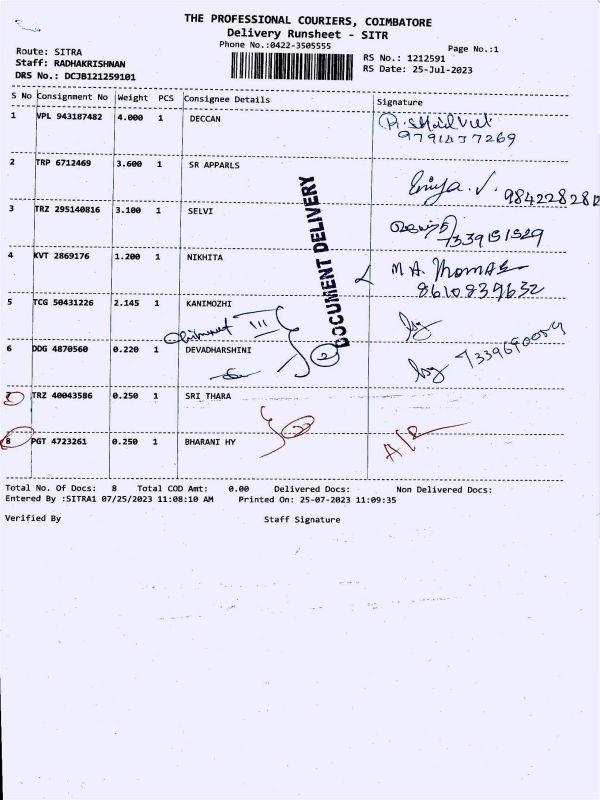 THE PROFESSIONAL COURIERS, COIMBATORE
Delivery Runsheet - SITR
Phone No.:0422-3505555
Page No.:1
Route: SITRA
Staff: RADHAKRISHNAN
DRS No.: DCJB121259101
RS No.: 1212591
RS Date: 25-Jul-2023
S No Consignment No Weight PCS Consignee Details Signature
1 VPL 943187482 4.000 1 DECCAN
2 TRP 6712469 3.600 1 SR APPARLS
3 TRZ 295140816 3.100 1 SELVI 7339151529
4 KVT 2869176 1.200 1 NIKHITA M A Thomas
8610839632
5 TCG 50431226 2.145 1 KANIMOZHI
6 DDG 4870560 0.220 1 DEVADHARSHINI
7 TRZ 40043586 0.250 1 SRI THARA
8 PGT 4723261 0.250 1 BHARANI HY A/R
DOCUMENT DELIVERY
Total No. Of Docs: 8 Total COD Amt: 0.00 Delivered Docs: Non Delivered Docs:
Entered By :SITRA1 07/25/2023 11:08:10 AM Printed On: 25-07-2023 11:09:35
Verified By Staff Signature